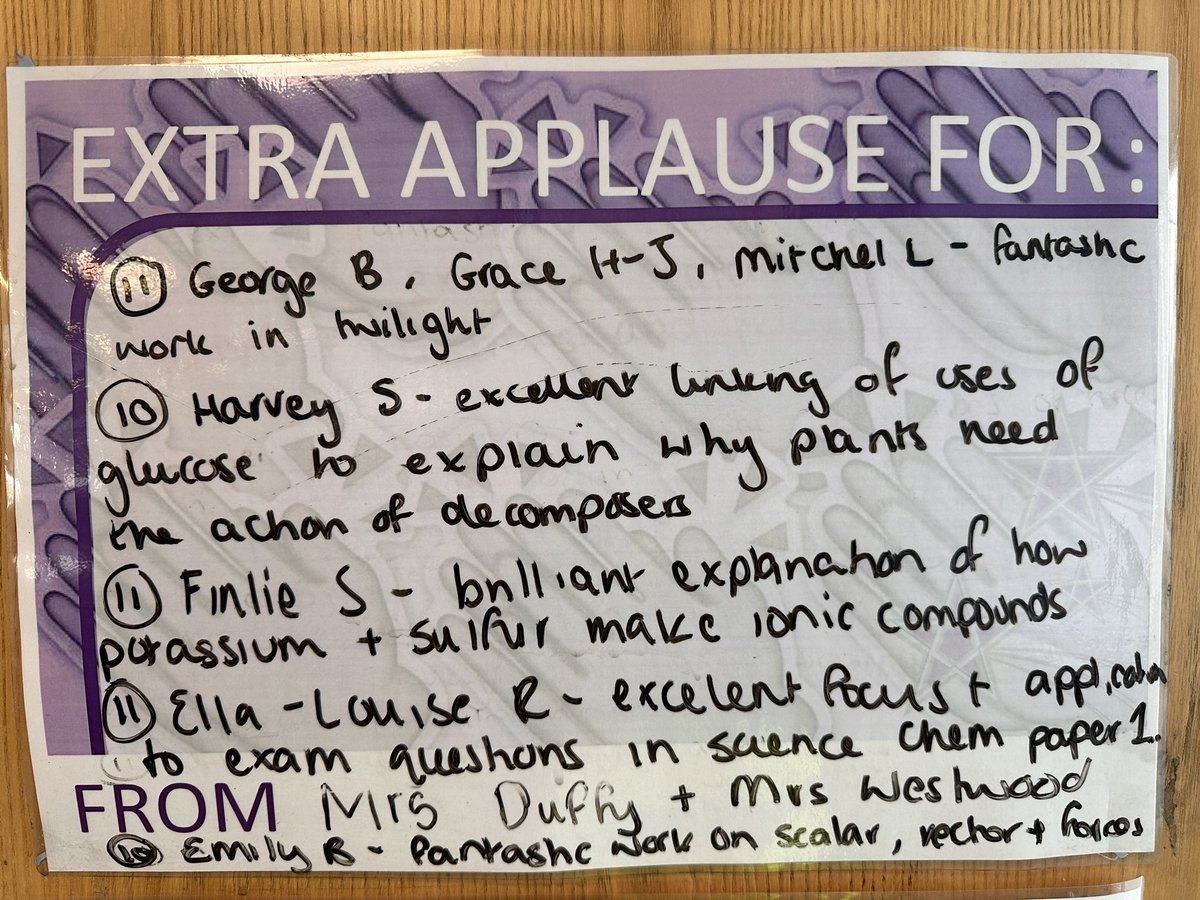 EXTRA APPLAUSE FOR:
11 George B, Grace H-J, Mitchel L - fantastic
work in twilight
10 Harvey S - excellent linking of uses of
glucose to explain why plants need
the action of decomposers
11 Finlie S - brilliant explanation of how
potassium + sulfur make ionic compounds
11 Ella-Louise R - excelent focus + application
to exam questions in science chem paper 1.
FROM Mrs Duffy + Mrs Westwood
10 Emily B - fantastic work on scalar, vector + forces